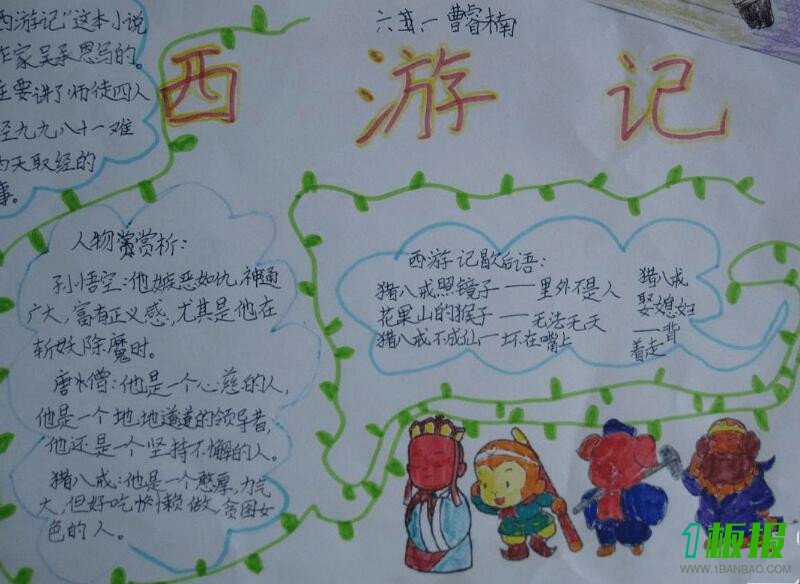 六班一 曹睿楠
西游记
西游记"这本小说
作家吴承恩写的。
主要讲了师徒四人
经九九八十一难
西天取经的
事。
人物赏析:
孙悟空:他嫉恶如仇,神通
广大,富有正义感,尤其是他在
斩妖除魔时。
唐僧:他是一个心慈的人,
他是一个地地道道的领导者,
他还是一个坚持不懈的人。
猪八戒:他是一个憨厚,力气
大,但好吃懒做,贪图女
色的人。
西游记歇后语:
猪八戒照镜子——里外不是人
花果山的猴子——无法无天
猪八戒不成仙—坏在嘴上
猪八戒
娶媳妇
—背
着走
1板报
WWW.1BANBAO.COM